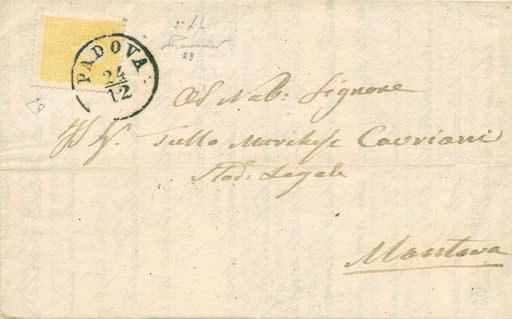 PADOVA
24
12
23
Al Nob: Signore
Tullo Marchese Cavriani
Stud: Legale
Mantova